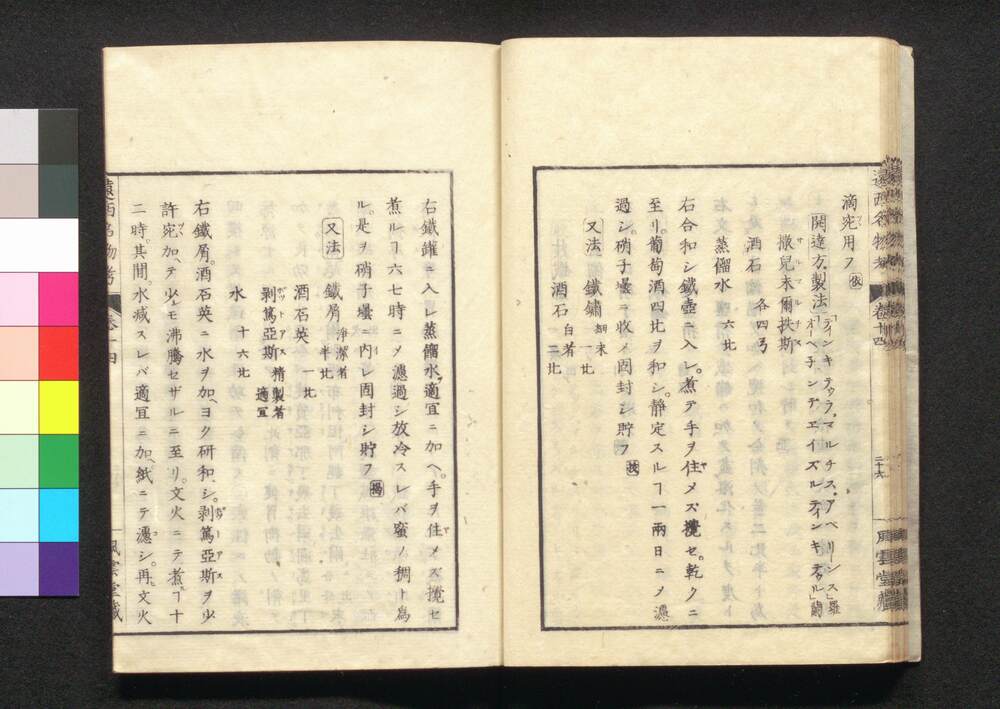 遠西名物考 卷十四 二十六 風雲堂藏
滴宛用フ 依
閼達方製法 「ティンキテゥラ、マルチス、アペリーンス」羅「オーペ子ンデエイズルティンキテゥル」蘭
撒兒末爾扶斯 各四弓
酒石
蒸餾水 六比
右合和シ鐵壺ニ入レ煮テ手ヲ住メズ攪セ乾クニ
至リ葡萄酒四比ヲ和シ靜定スルヿ一兩日ニメ濾
過シ硝子壜ニ收メ固封シ貯フ 扶
又法 鐵鏽 細末 一比
酒石 白者 二比
右鐵罐ニ入レ蒸餾水適宜ニ加ヘ手ヲ住メズ攪セ
煮ルヿ六七時ニメ濾過シ放冷スレバ蜜ノ稠ト爲
ル是ヲ硝子壜ニ内レ固封シ貯フ 掲
又法 鐵屑 淨潔者 半比
酒石英 一比
剥篤亞斯 精製者 適宜
水 十六比
右鐵屑酒石英ニ水ヲ加ヘヨク研和シ剥篤亞斯ヲ少
許宛加ヘテ少モ沸騰セザルニ至リ文火ニテ煮ヿ十
二時其間水減スレバ適宜ニ加ヘ紙ニテ濾シ再文火
遠西名物考 卷十四 風雲堂藏